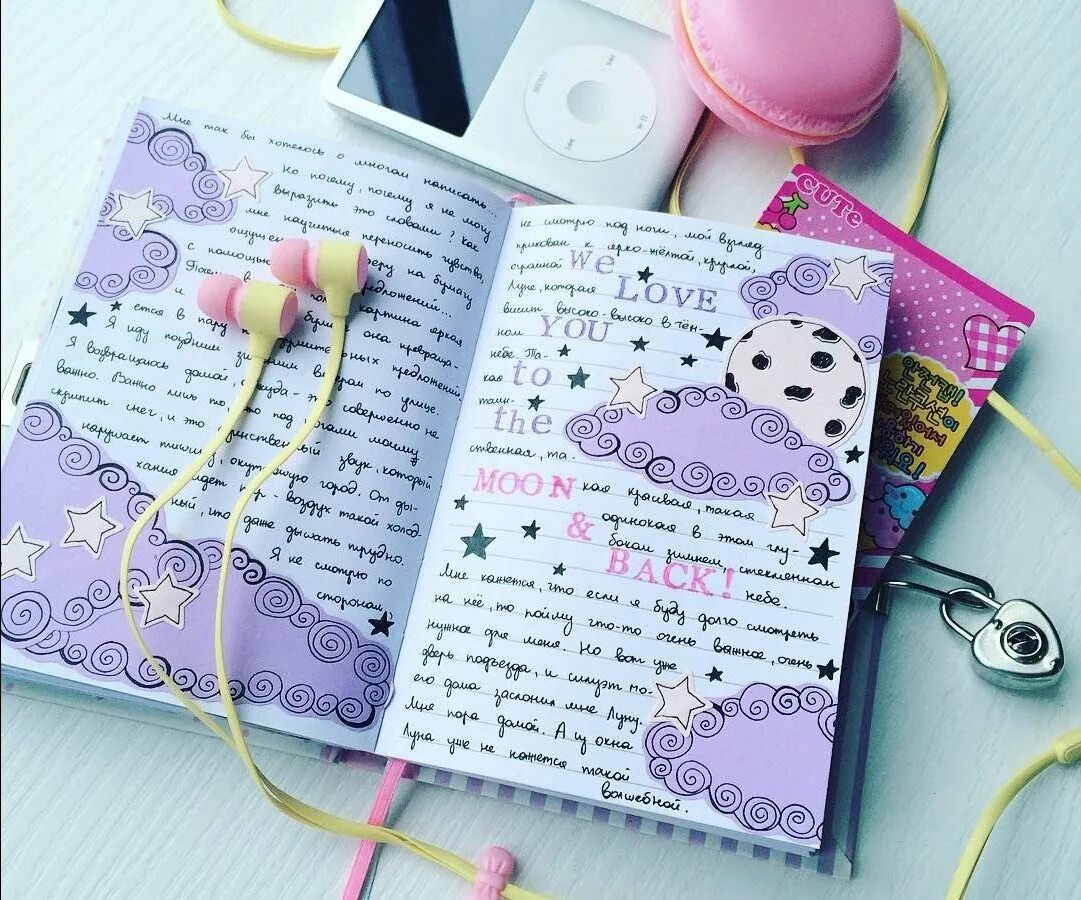 Мне так бы хотелось о многом написать...
Но почему, почему я не могу
выразить это словами? Как
мне научиться переносить чувства,
ощуще
с помощью предложений...
картина яркая
и
ется в пару
Я иду поздним зимним вечером по улице.
Я возвращаюсь домой, откуда - это совершенно не
важно. Важно лишь то, что под ногами моими
скрипит снег, и это единственный звук, который
нарушает тишину, окутавшую город. От ды-
хания идет пар - воздух такой холод-
ный, что даже дышать трудно.
Я не смотрю по
сторонам,
не смотрю под ноги, мой взгляд
прикован к ярко-жёлтой, круглой,
огромной
Луне, которая
висит высоко-высоко в тём-
ном
небе. Та-
кая
таин-
ственная, та-
кая красивая, такая
одинокая в этом глу-
боком зимнем, стеклянном
небе.
We
LOVE
YOU
to
the
MOON
&
BACK!
Мне кажется, что если я буду долго смотреть
на неё, то пойму что-то очень важное, очень
нужное для меня. Но вот уже
дверь подъезда, и силуэт мо-
его дома заслонил мне Луну.
Мне пора домой. А из окна
Луна уже не кажется такой
волшебной.
MENU
CUTe